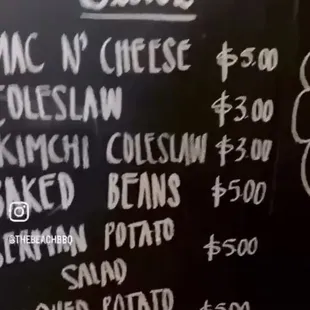 MAC N' CHEESE $5.00
COLESLAW $3.00
KIMCHI COLESLAW $3.00
BAKED BEANS $5.00
@THEBEACHBBQ
GERMAN POTATO $5.00
SALAD
POTATO $5.00